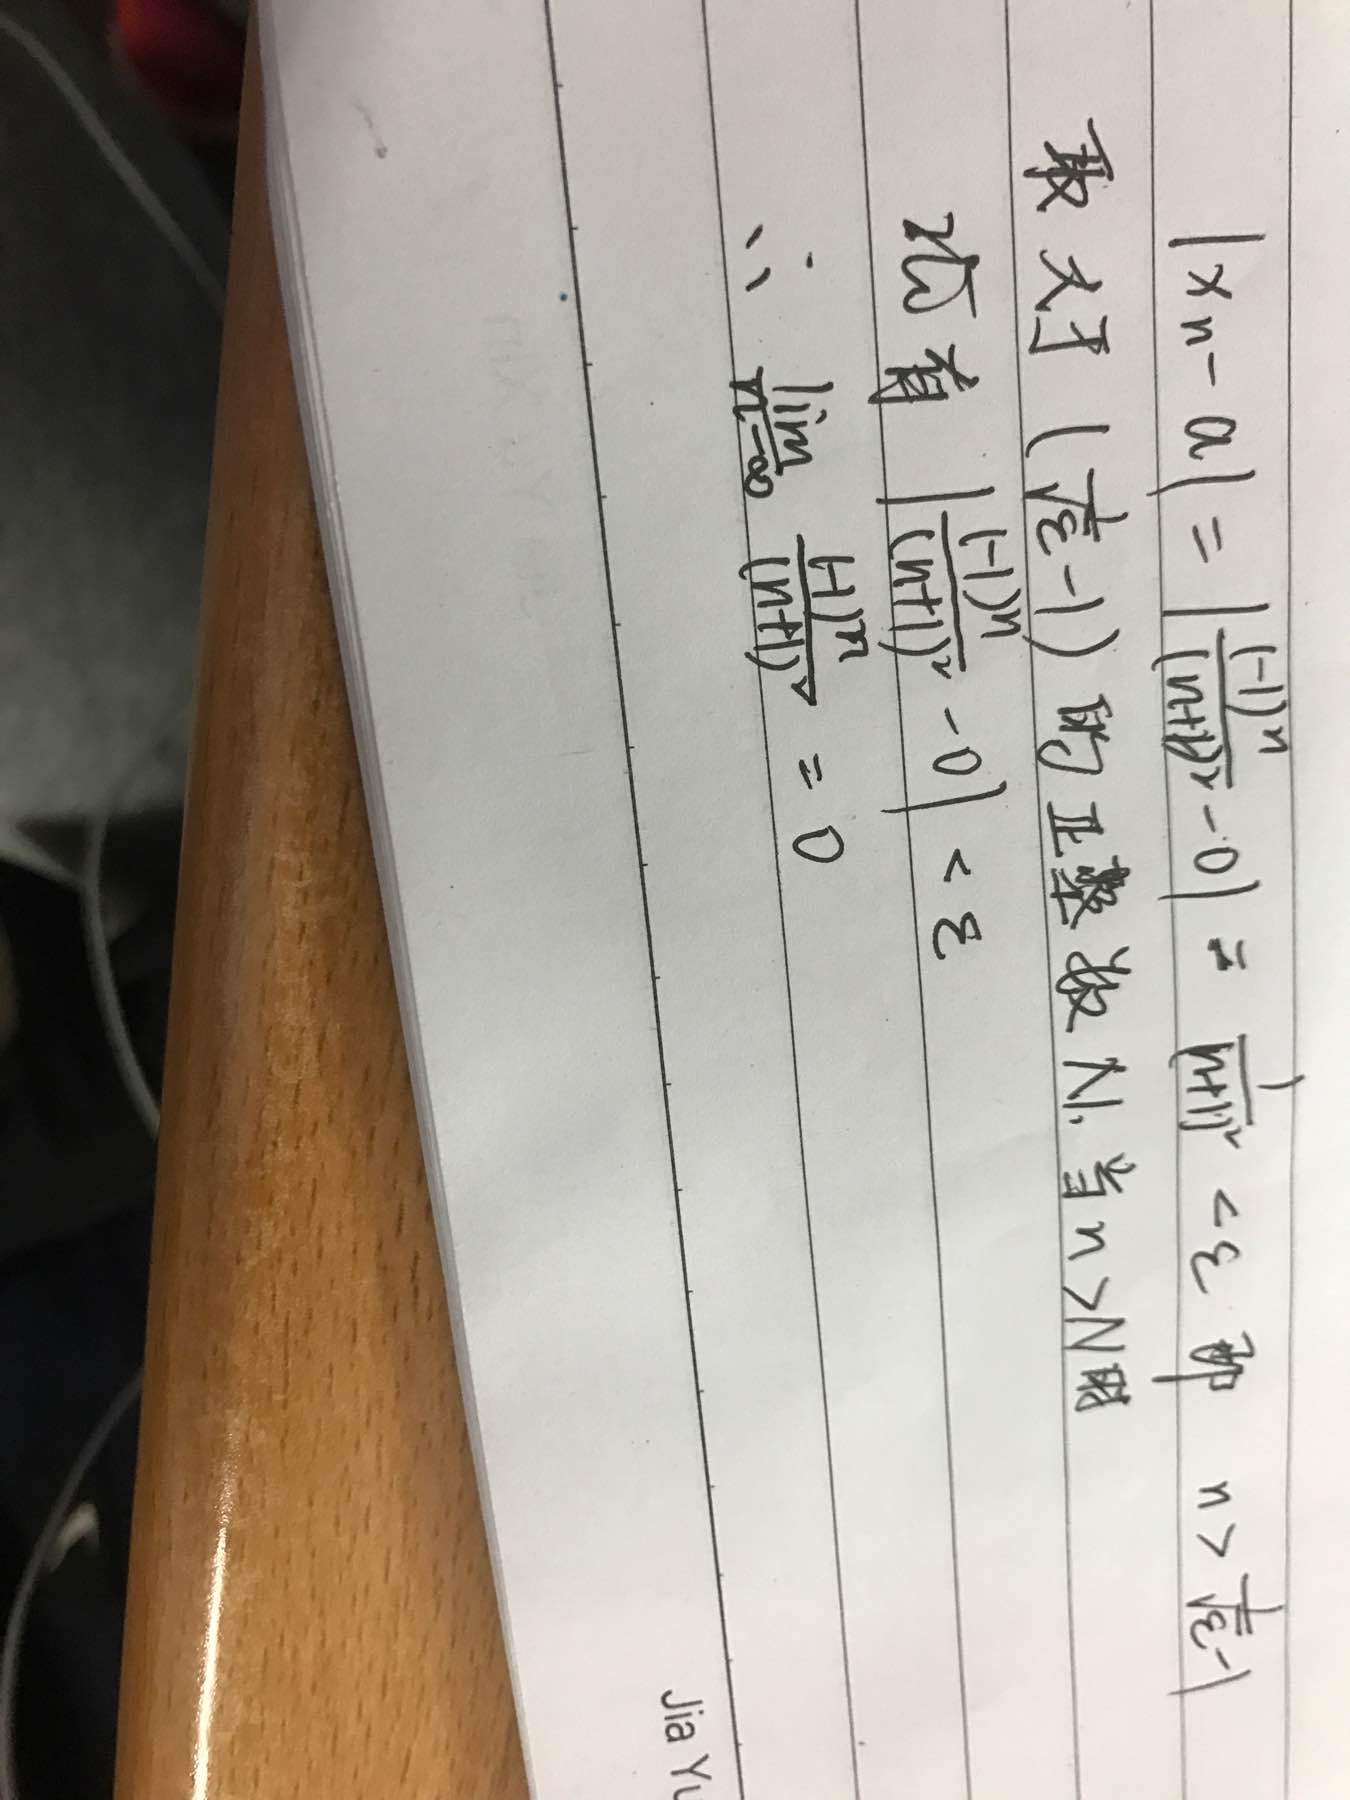 |xn-a| = |(-1)ⁿ/(n+1)² - 0| = 1/(n+1)² < ε 即 n > 1/√ε - 1
取大于 (1/√ε - 1) 的正整数 N, 当 n>N时
就有 |(-1)ⁿ/(n+1)² - 0| < ε
∴ lim n→∞ (-1)ⁿ/(n+1)² = 0
Jia Yu